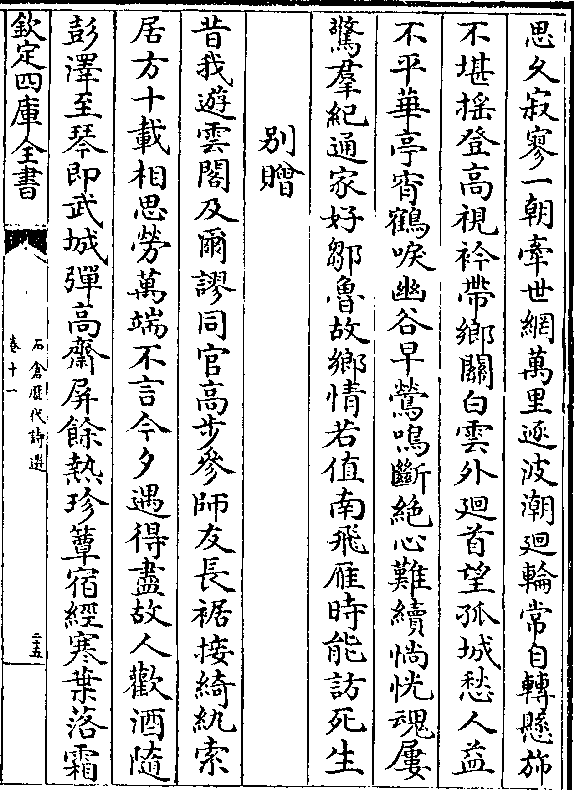 思久寂寥一朝牽世網萬里逐波潮廻輪常自轉懸旆
不堪揺登高視衿帶鄉關白雲外廻首望孤城愁人益
不平華亭宵鶴唳幽谷早鶯鳴斷絶心難續惝恍魂屢
驚羣紀通家好鄒魯故鄉情若值南飛雁時能訪死生
別贈
昔我遊雲閣及爾謬同官高步參師友長裾接綺紈索
居方十載相思勞萬端不言今夕遇得盡故人歡酒隨
彭澤至琴即武城彈高齋屏餘熱珍簟宿經寒葉落霜
欽定四庫全書
石倉歷代詩選
卷十一
二五